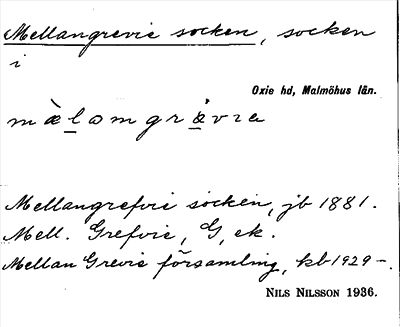 Mellangrevie socken, socken
i
Oxie hd, Malmöhus län.
mæ̀l̠omgrǻ̠vra
Mellangrefvie socken, jb 1881.
Mell. Grefvie, G, ek.
Mellan Grevie församling, kb 1929 –.
NILS NILSSON 1936.